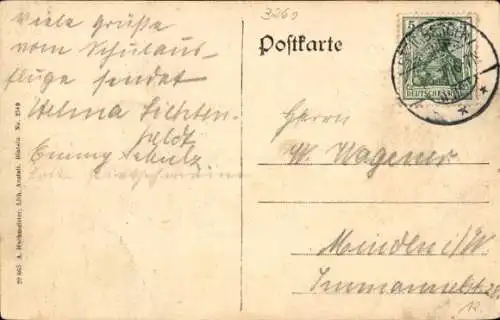 3269
Viele Grüße
vom Schulaus-
fluge sendet
Helma Lichten-
feldt
Emmy Schulz
Postkarte
5
DEUTSCHES REICH
Herrn
W. Wagener
Minden i/W.
Immanuelst 28
22 865 A. Huchmeister, Lith. Anstalt, Rinteln No. 2549